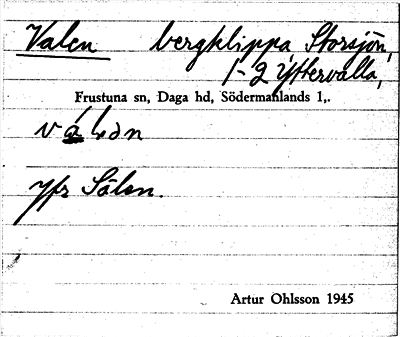 Valen bergklippa, Storsjön,
1-2 Yttervalla,
Frustuna sn, Daga hd, Södermanlands l,.
Jfr Sälen.
Artur Ohlsson 1945